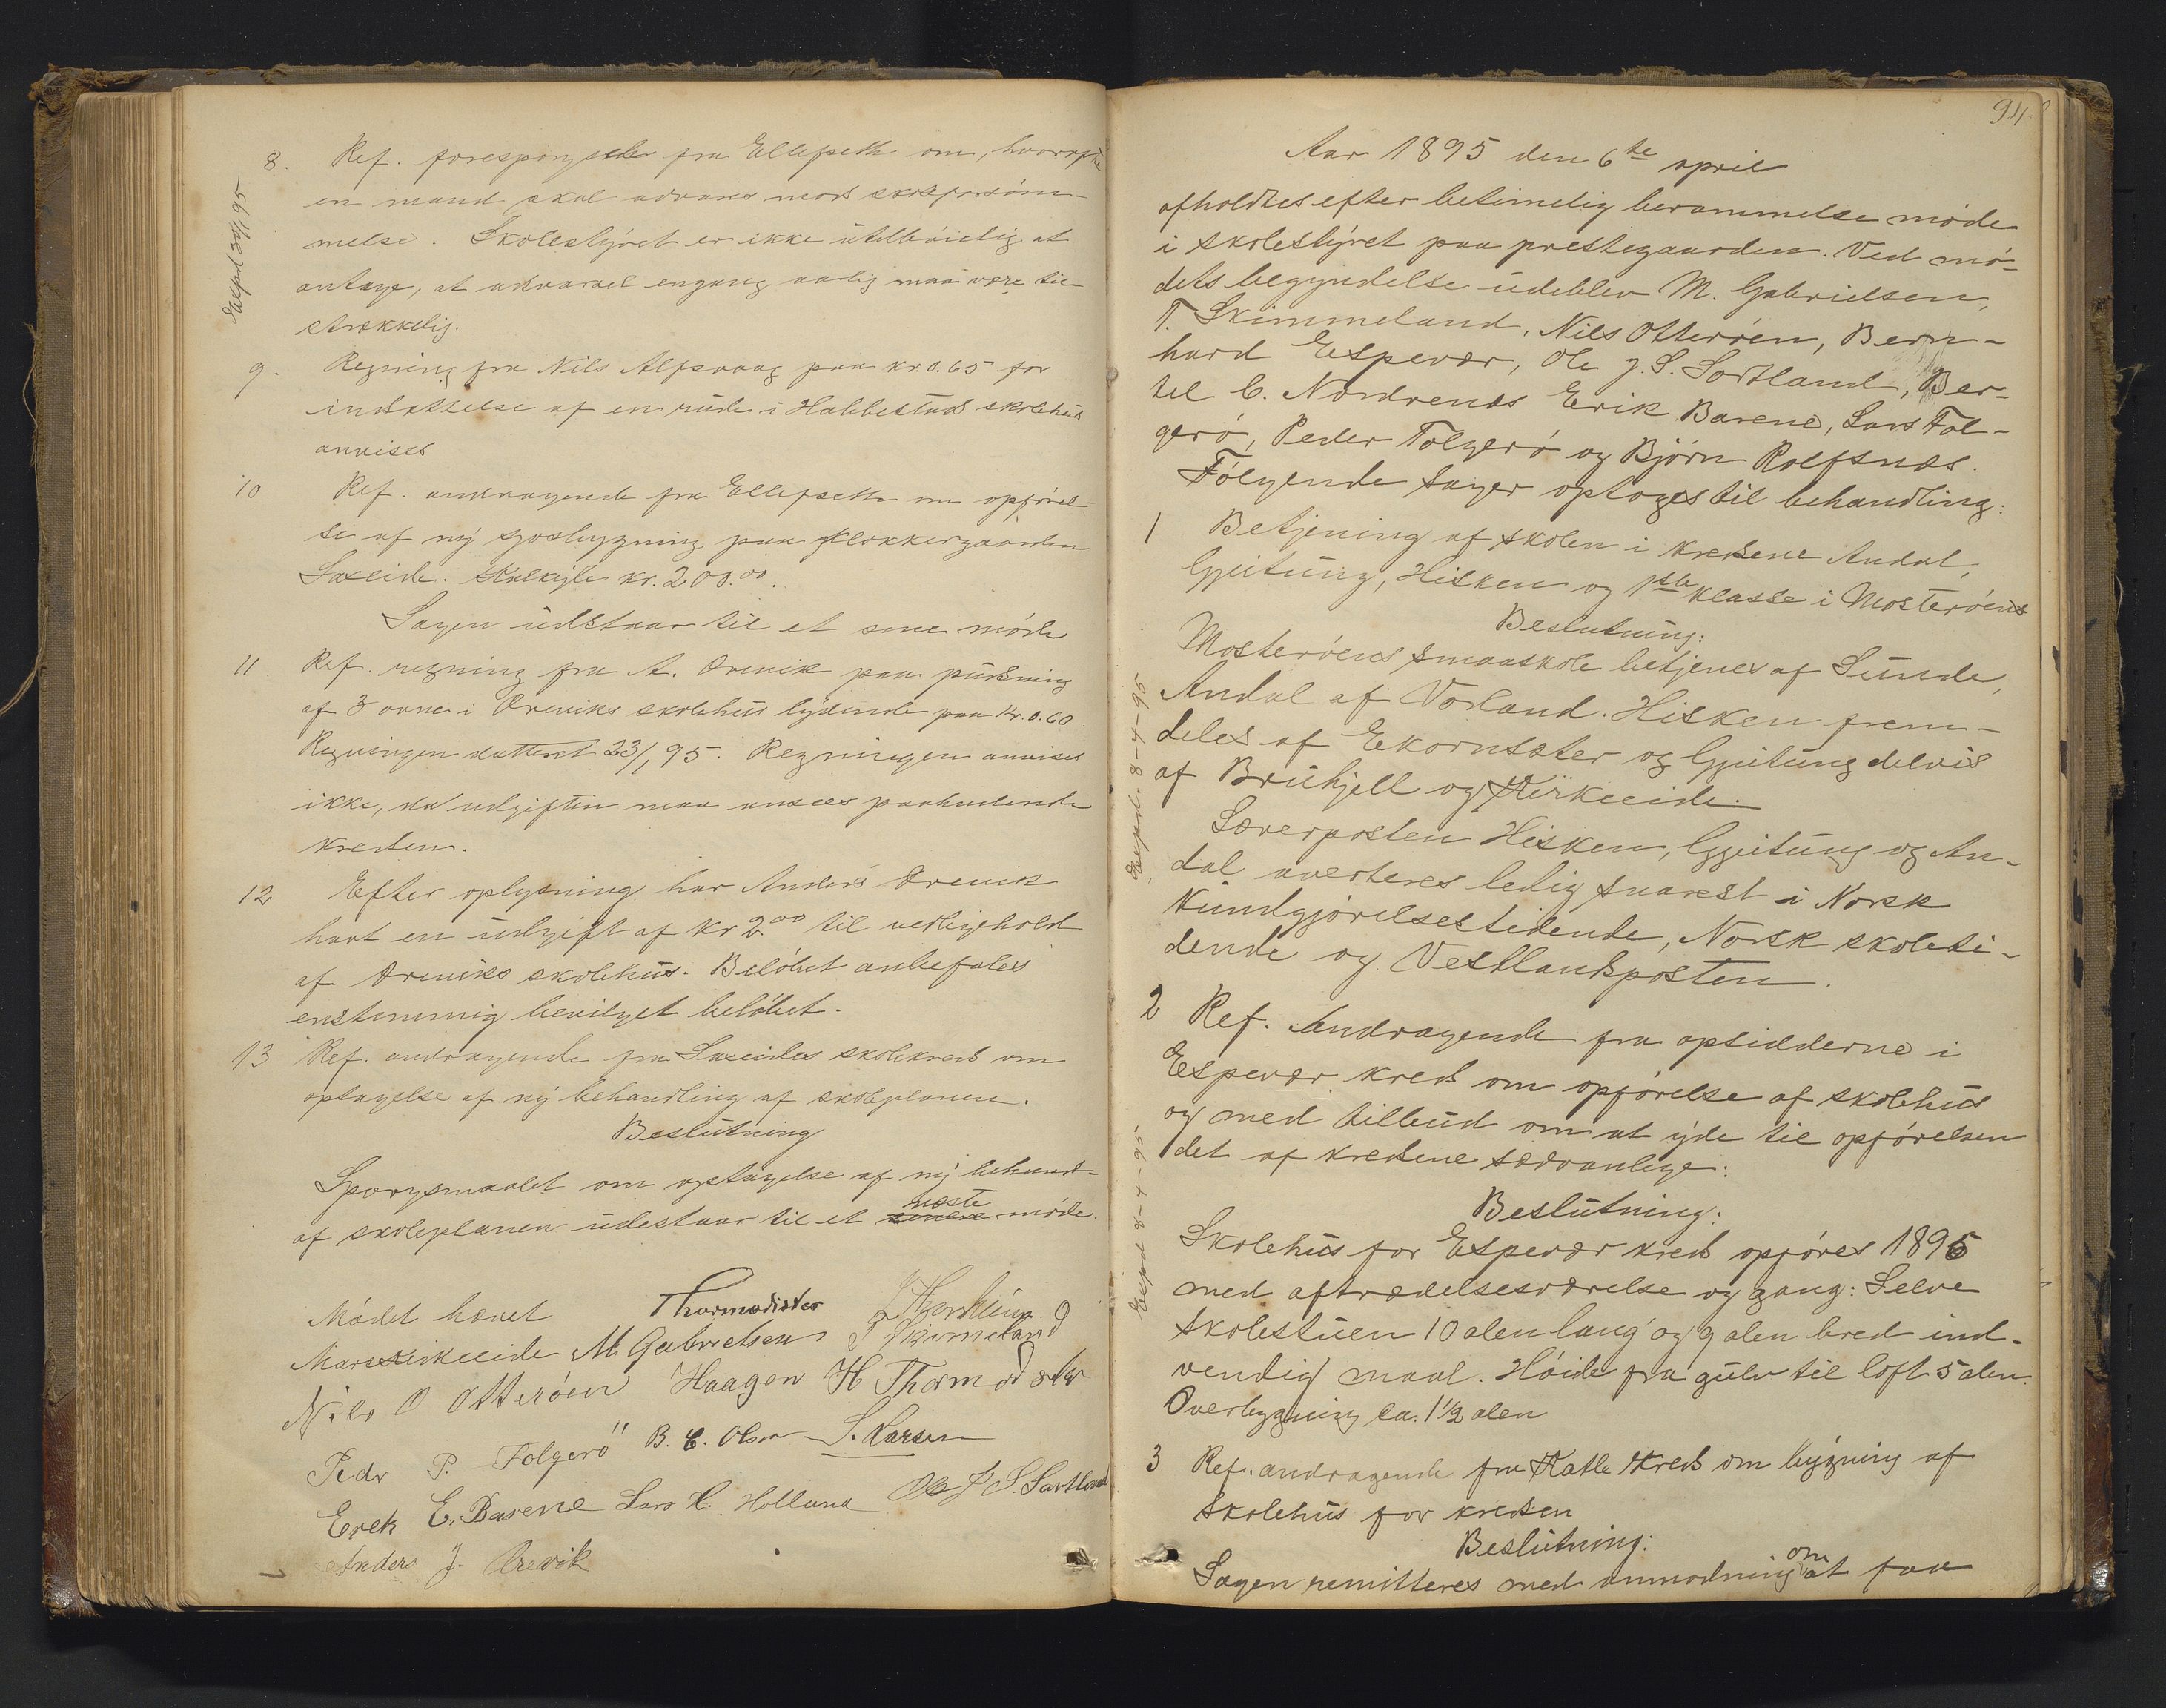 8. Ref. forespørgsel fra Ellefseth om, hvorofte
en mand skal advares mod skoleforsøm-
melse. Skolestyret er ikke utilbøielig at
antage, at advarsel engang aarlig maa være til-
strækkelig.
Exped 30/1 95
9. Regning fra Nils Alfsvaag paa kr. 0.65 for
indsættelse af en rude i Habbestad skolehus
anvises
10 Ref. andragende fra Ellefseth om opførel-
se af ny bygning paa klokkergaarden
Sæeide. kr. 200.00.
Sagen udstaar til et møde
11 Ref. regning fra A. Ørevik paa pudsning
af 3 ovne i Øreviks skolehus lydende paa Kr. 0.60.
Regningen datteret 23/1 95. Regningen anvises
ikke, da udgiften maa ansees paahvilende
kredsen.
12 Efter oplysning har Anders Ørevik
havt en udgift af Kr 2.00 til vedligehold
af Øreviks skolehus. Beløbet anbefales
enstemmig bevilget beløbet.
13 Ref. andragende fra Sæeides skolekreds om
optagelse af ny behandling af skoleplanen.
Beslutning
Spørgsmaalet om optagelse af ny behandl-
af skoleplanen udestaar til et næste møde.
Mødet hævet Thormodsæter
M. Gabrielsen T Skimmeland
Nils O Otterøen Haagen H Thormodsæter
Pedr P. Folgerö B. E. Olsen L. Larsen
Erek E. Barene Lars H. Holland Ole J. S. Sortland
Anders J. Ørevik
94
Aar 1895 den 6te april
afholdtes efter betimelig berammelse møde
i skolestyret paa prestegaarden. Ved mø-
dets begyndelse udeblev M. Gabrielsen,
T. Skimmeland, Nils Otterøen, Bern-
hard Espevær, Ole J. S. Sortland, Ber-
tel C. Nordrenæs Erik Barene, Lars Fol-
gerø, Peder Folgerø og Bjørn Rolfsnæs.
Følgende sager optoges til behandling:
1 Betjening af skolen i kredsene Andal,
Gjeitung, Hisken og 1ste klasse i Mosterøens
Beslutning:
Mosterøens smaaskole betjenes af Sunde,
Andal af Vorland. Hisken frem-
deles af Ekornsæter og Gjeitung delvis
af Bruhjell og Kirkeeide.
Exped. 8-4-95
Lærerposten Hisken, Gjeitung og An-
dal averteres ledig snarest i Norsk
Kundgjørelsestidende, Norsk skoleti-
dende og Vestlandsposten.
2 Ref. Andragende fra opsidderne i
Espevær kreds om opførelse af skolehus
og med tilbud om at yde til opførelsen
det af kredsene sædvanlige:
Exped 8-4-95
Beslutning:
Skolehus for Espevær kreds opføres 1896
med aftrædelsesværelse og gang: Selve
skolestuen 10 alen lang og 9 alen bred ind-
vendig maal. Høide fra gulv til loft 5 alen.
Overbygning ca. 1 1/2 alen
3 Ref. andragende fra Katle kreds om bygning af
skolehus for kredsen
Beslutning:
Sagen remitteres med anmodning om at faa